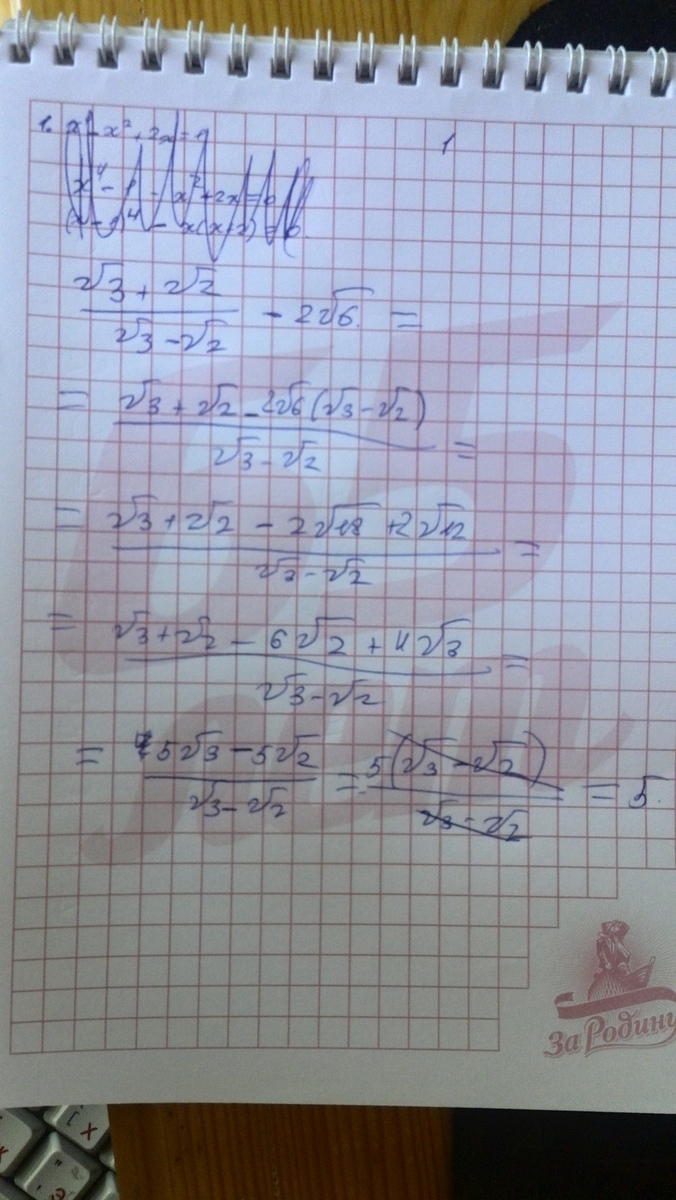 1
(√3 + √2) / (√3 - √2) - 2√6 =
= (√3 + √2 - 2√6 (√3 - √2)) / (√3 - √2) =
= (√3 + √2 - 2√18 + 2√12) / (√3 - √2) =
= (√3 + √2 - 6√2 + 4√3) / (√3 - √2) =
= (5√3 - 5√2) / (√3 - √2) = 5(√3 - √2) / (√3 - √2) = 5.
65 лет
За Родину